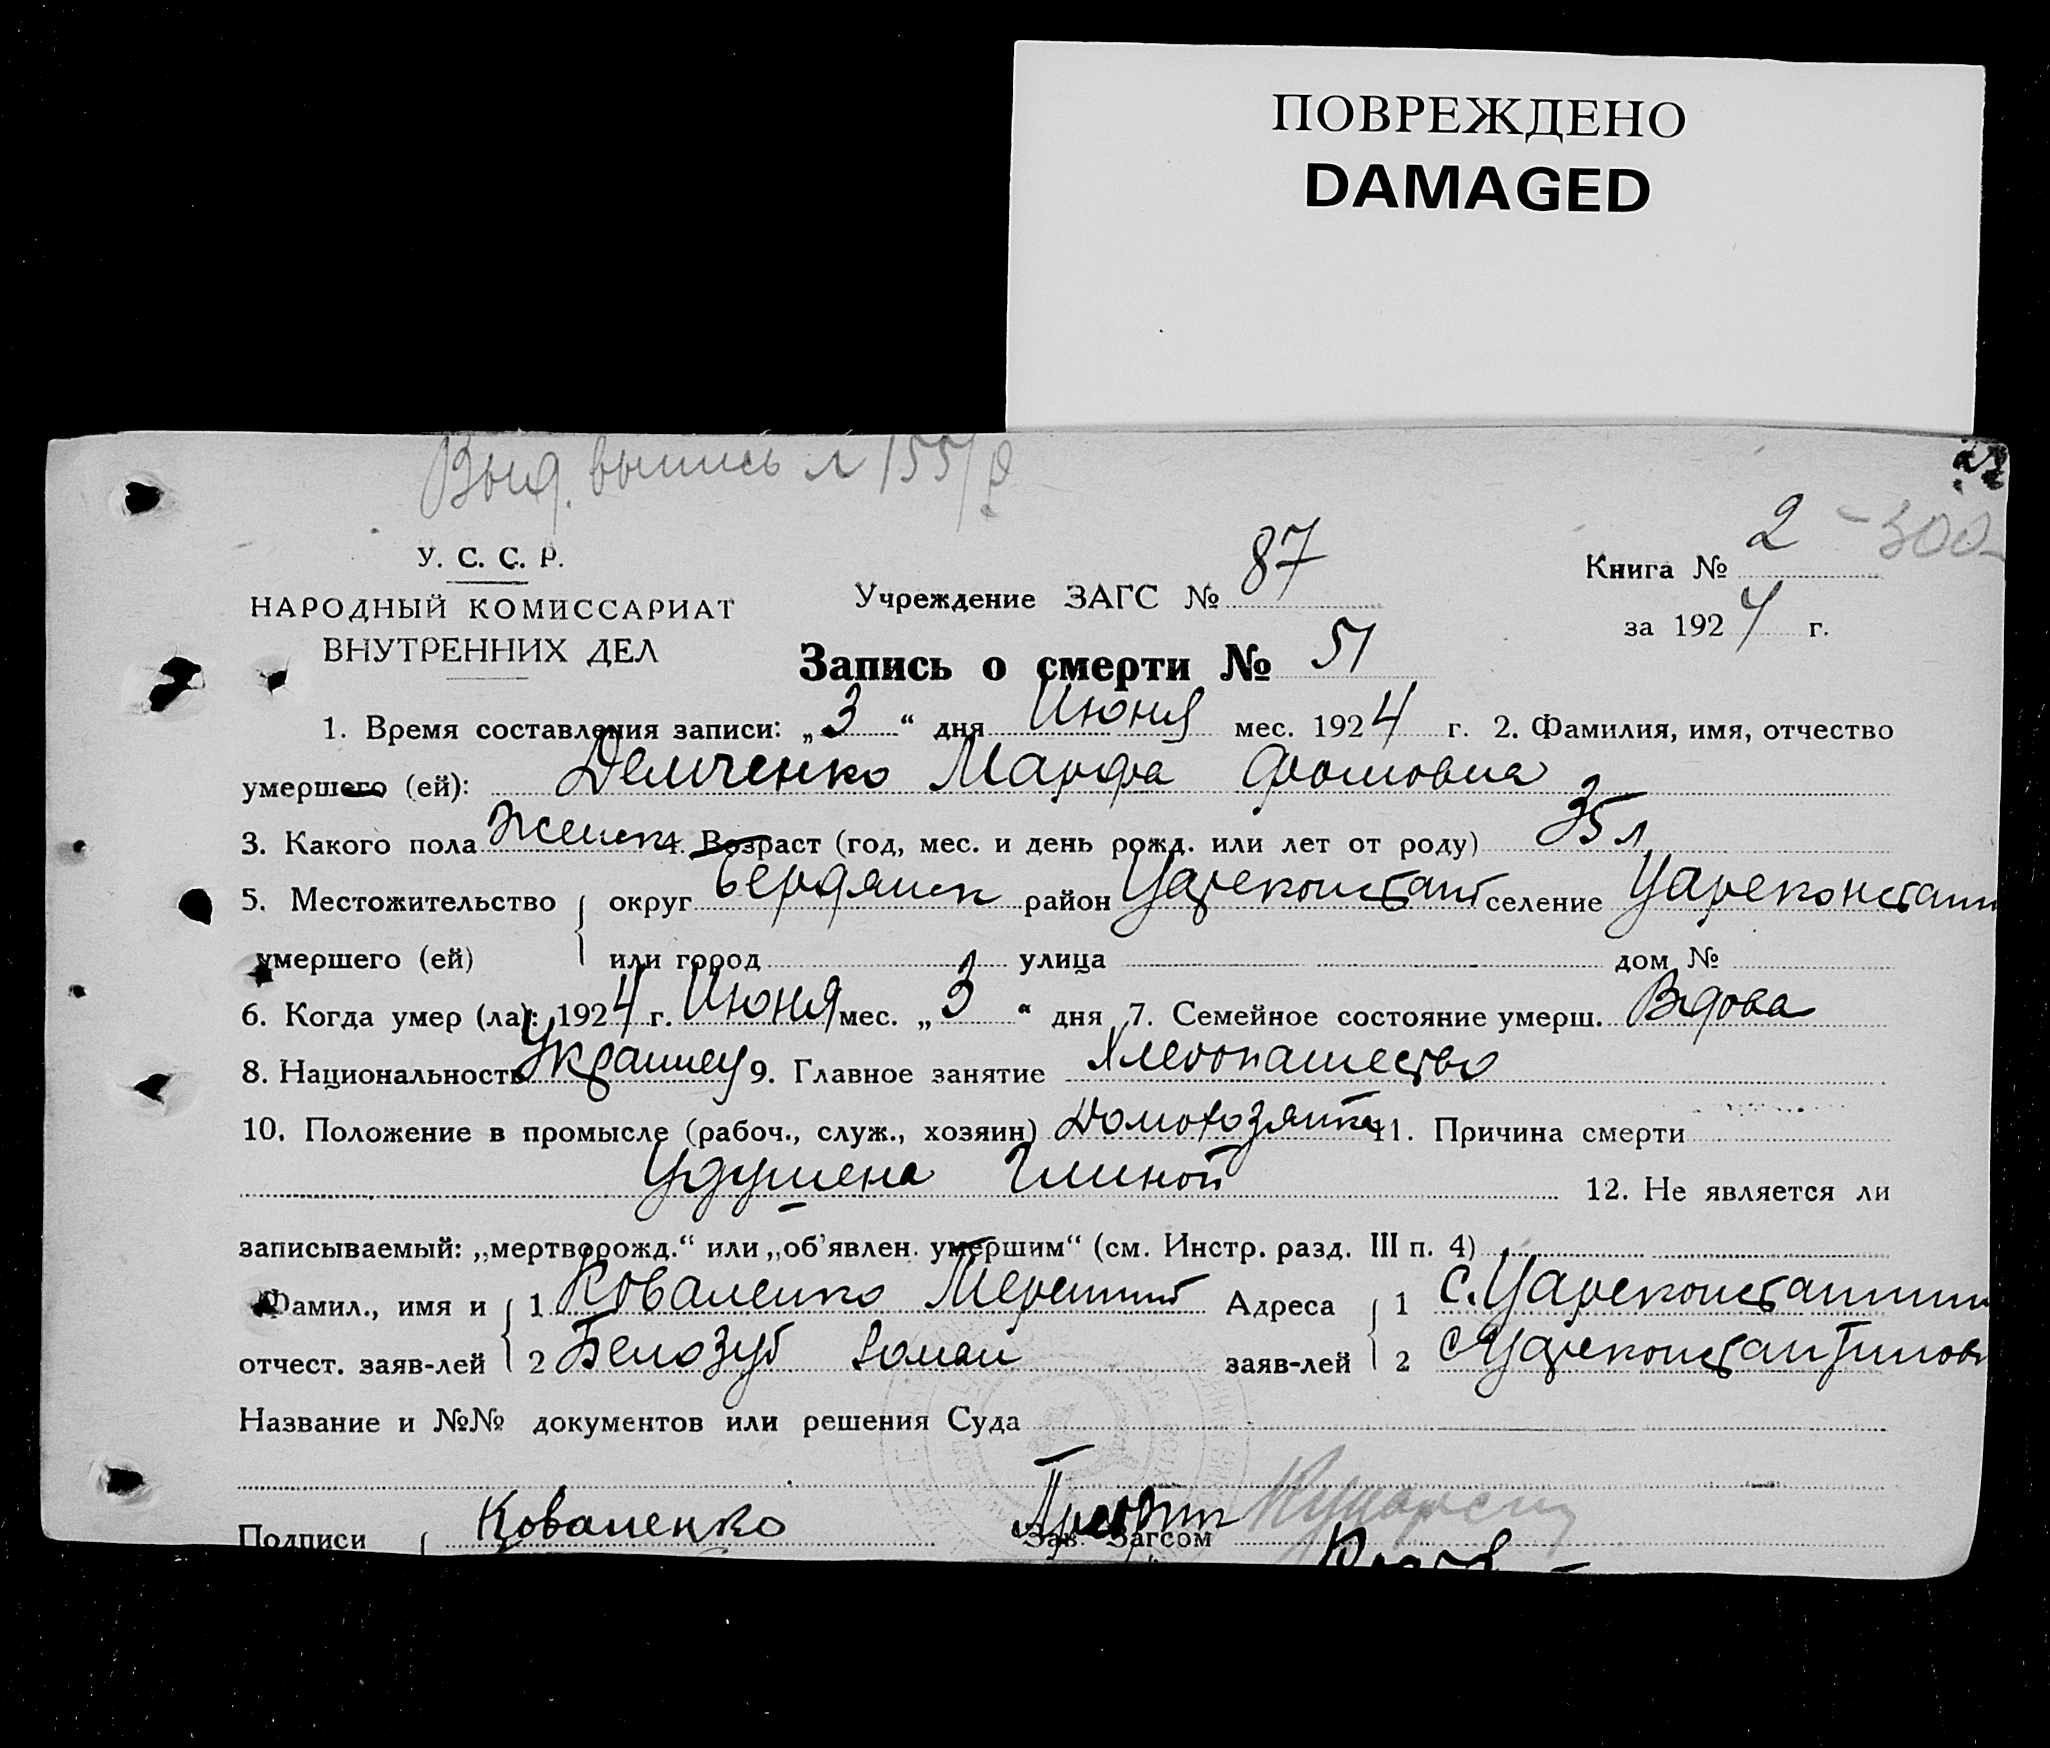 ПОВРЕЖДЕНО
DAMAGED
Выд. выпись 155/
2 - 300
У. С. С. Р.
НАРОДНЫЙ КОМИССАРИАТ
ВНУТРЕННИХ ДЕЛ
Учреждение ЗАГС № 87
Книга №
за 1924 г.
Запись о смерти № 51
1. Время составления записи: „3“ дня Июня мес. 1924 г. 2. Фамилия, имя, отчество
умершего (ей): Демченко Марфа Фомовна
3. Какого пола Женск 4. Возраст (год, мес. и день рожд. или лет от роду) 35 л
5. Местожительство { округ Бердянск район Цареконстант селение Цареконстант
умершего (ей) или город улица дом №
6. Когда умер (ла): 1924 г. Июня мес. „3“ дня 7. Семейное состояние умерш. Вдова
8. Национальность Украинец 9. Главное занятие Хлебопашество
10. Положение в промысле (рабоч., служ., хозяин) Домохозяйка 11. Причина смерти
Удушена Глиной 12. Не является ли
записываемый: „мертворожд.“ или „об'явлен. умершим“ (см. Инстр. разд. III п. 4)
Фамил., имя и { 1 Коваленко Адреса { 1 с. Цареконстантин
отчест. заяв-лей 2 Белозуб заяв-лей 2 с Цареконстантинов
Название и №№ документов или решения Суда
Подписи { Коваленко Зав. Загсом